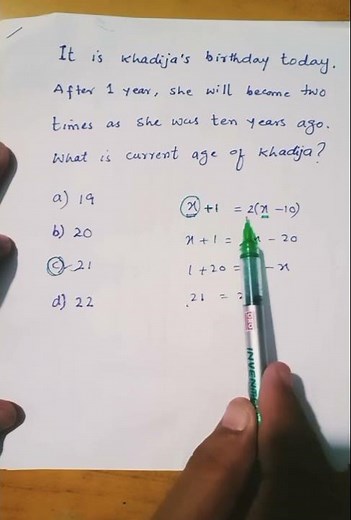 It is Khadija's birthday today.
After 1 year, she will become two
times as she was ten years ago.
What is current age of Khadija?
a) 19
b) 20
c) 21
d) 22
x + 1 = 2(x - 10)
x + 1 = x - 20
1 + 20 = - x
21 =
INVEN